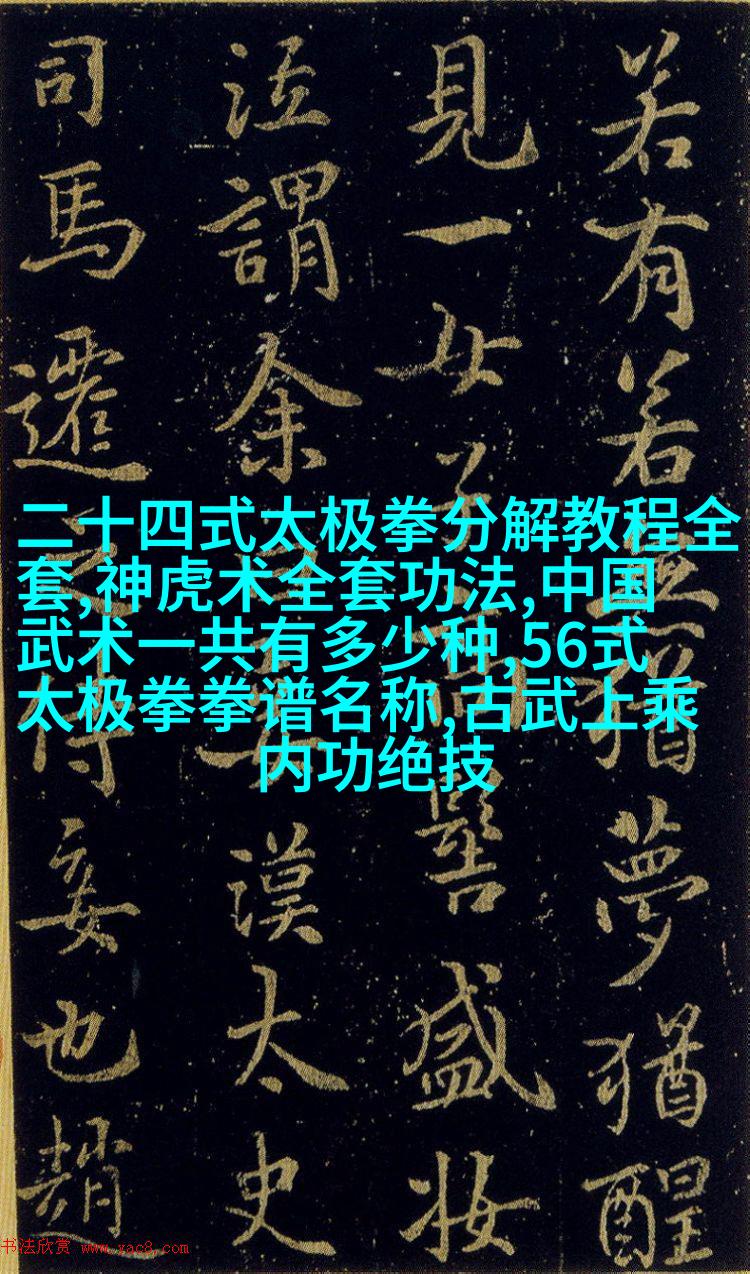 若有若無猶夢猶醒
見一女子高髻盛妝
泣謂余妾漢太史
司馬遷侍妾也趙
二十四式太极拳分解教程全
套,神虎术全套功法,中国
武术一共有多少种,56式
太极拳拳谱名称,古武上乘
内功绝技
书法欣赏 www.yac8.com